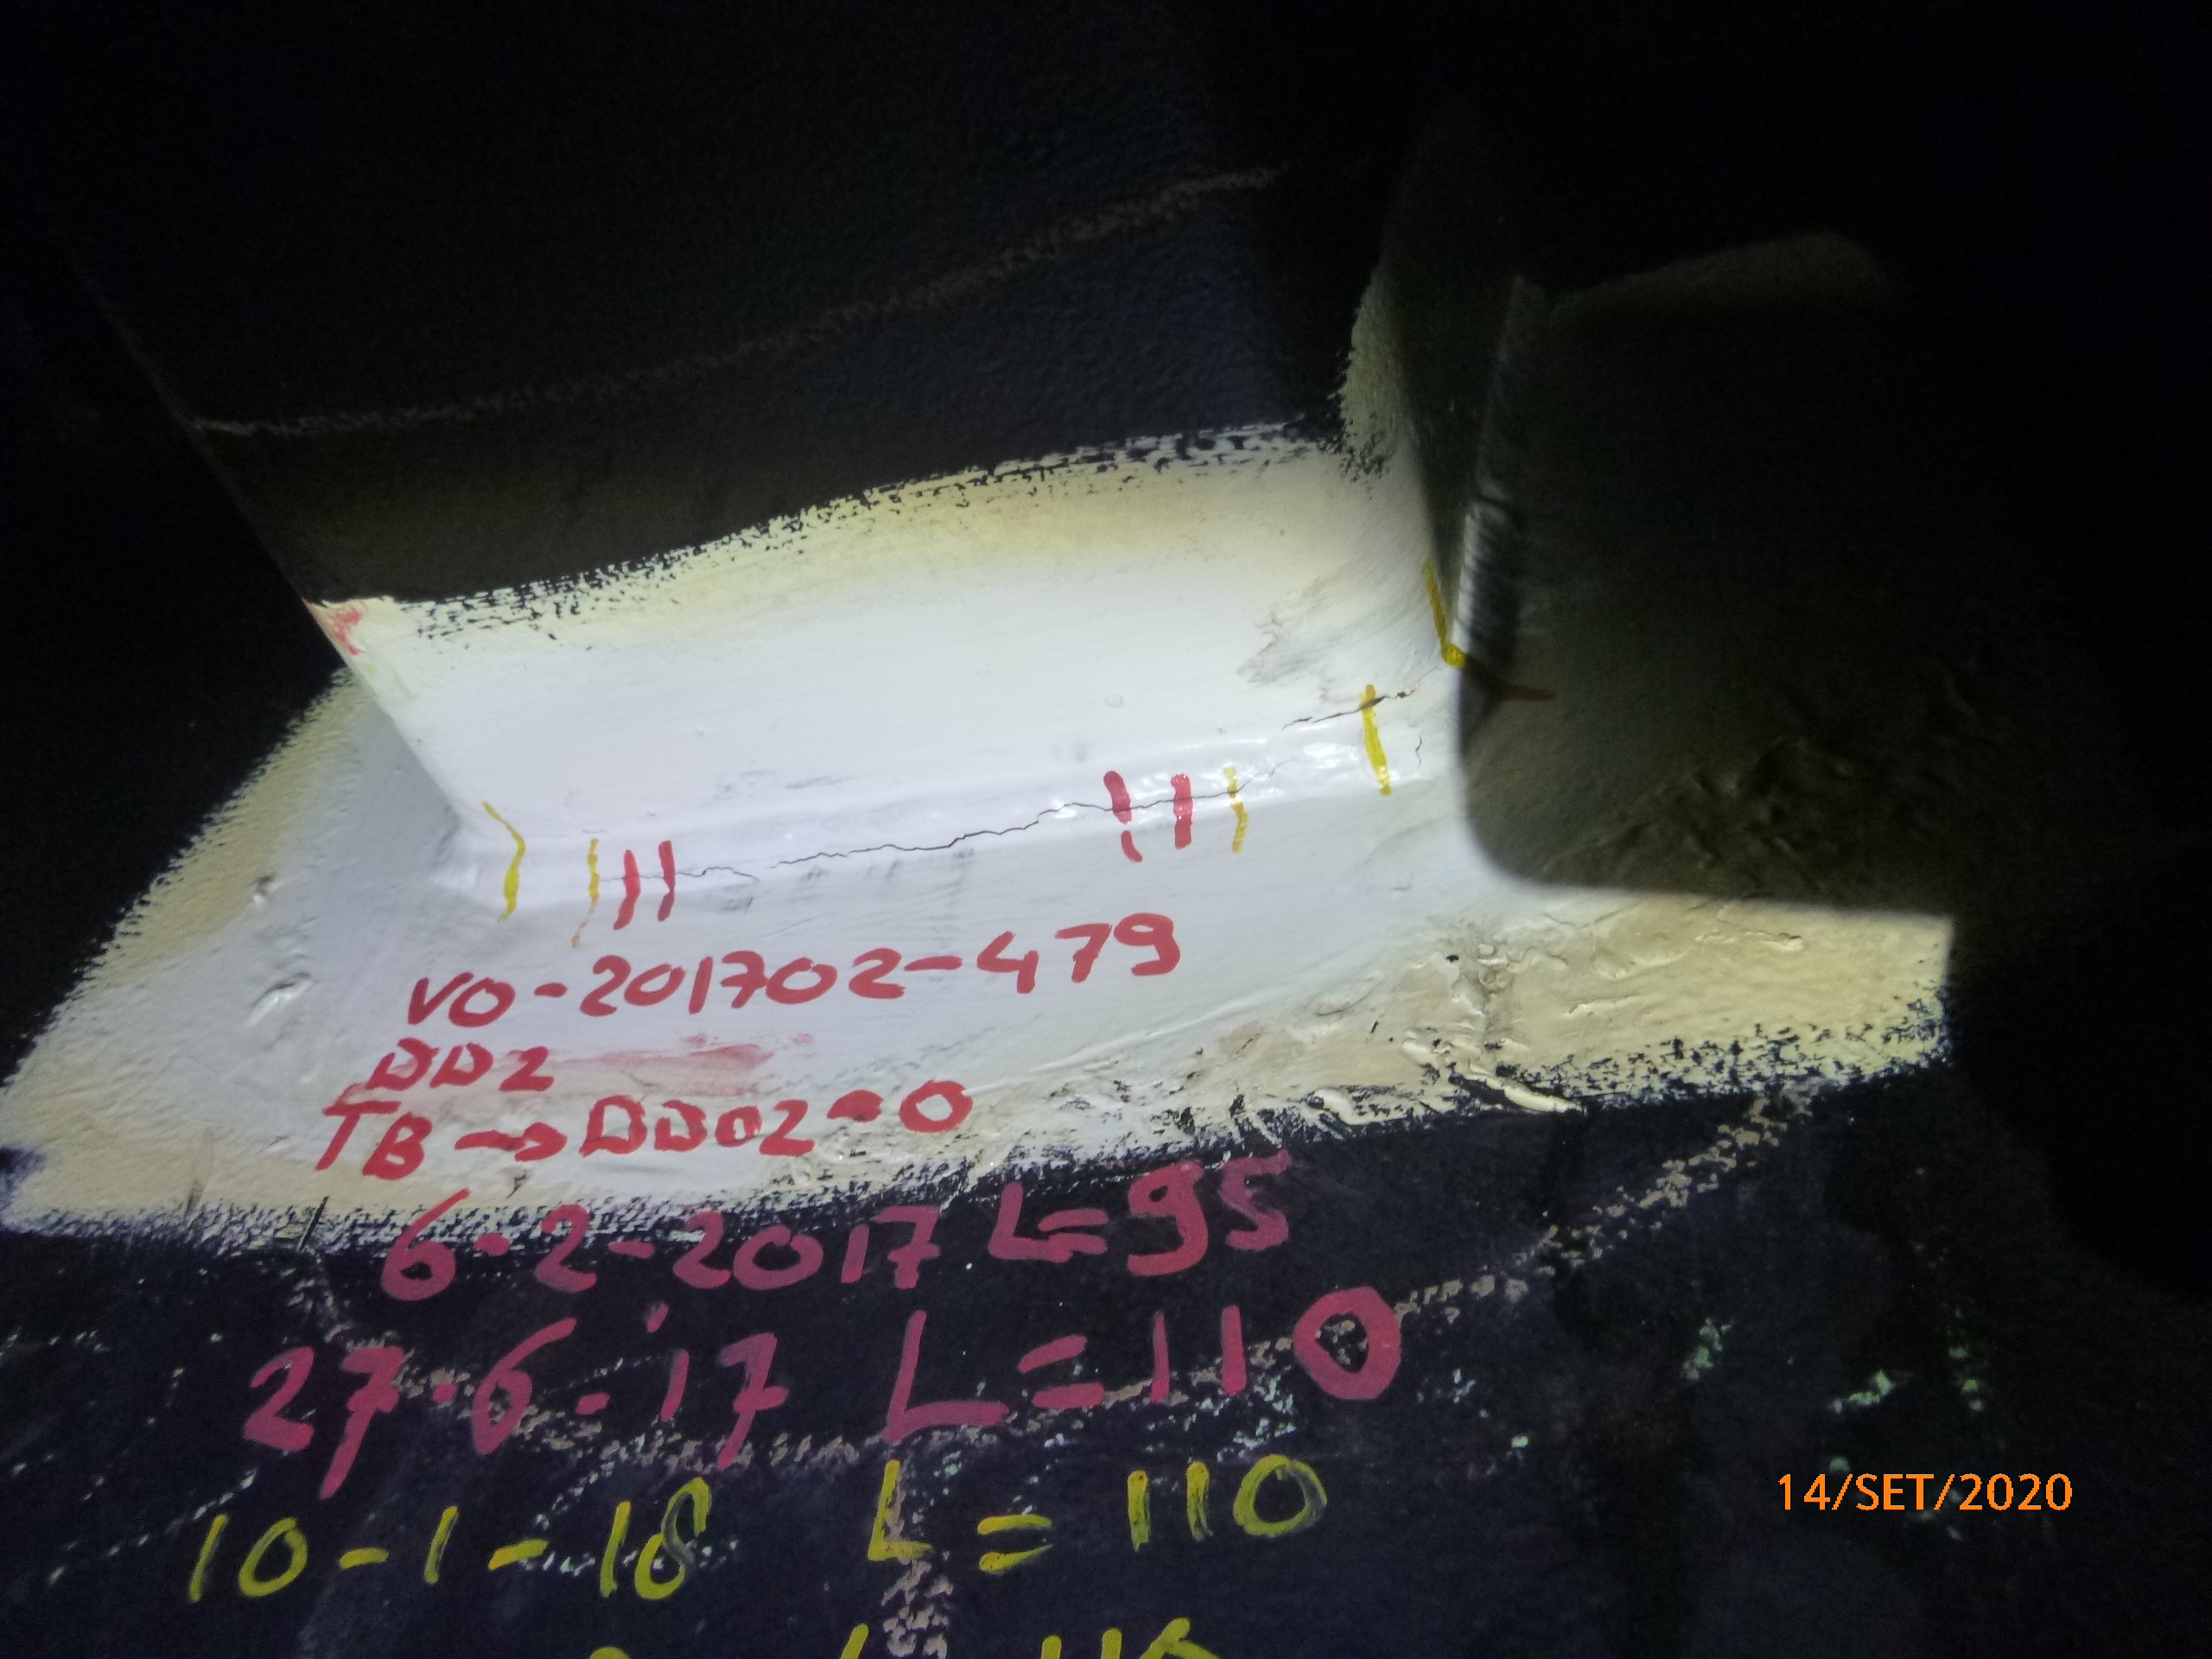 VO-201702-479
DD2
TB → DD02-0
6-2-2017 L=95
27-6-17 L=110
10-1-18 L=110
14/SET/2020